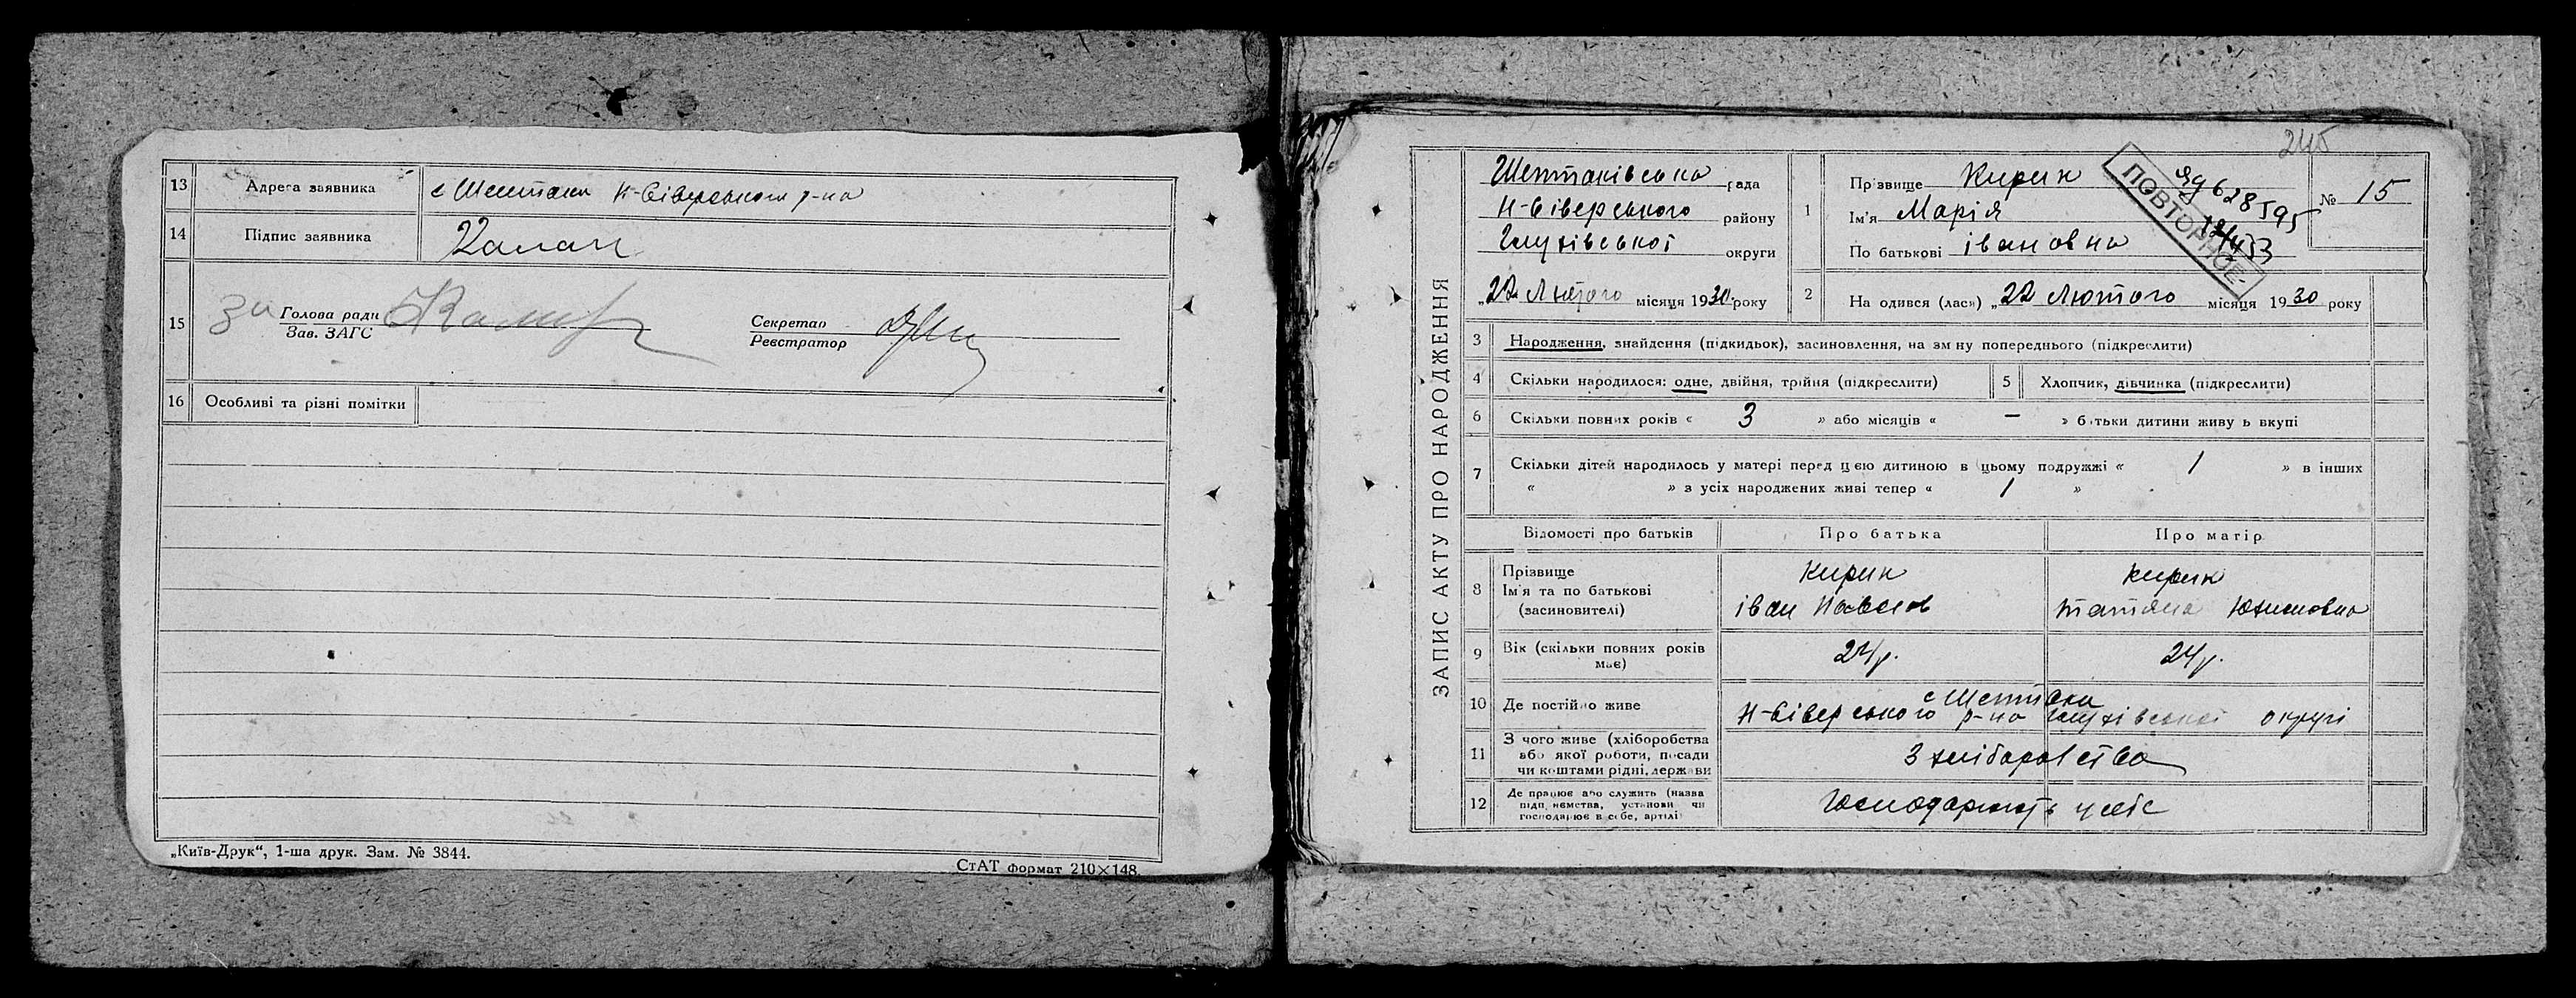 13 Адреса заявника с Шептаки Н-Сіверського р-на
14 Підпис заявника
15 за Голова ради
Зав. ЗАГС
Секретар
Реєстратор
16 Особливі та різні помітки
„Київ-Друк“, 1-ша друк. Зам. № 3844.
СтАТ формат 210×148.
245
ЗАПИС АКТУ ПРО НАРОДЖЕННЯ
Шептаківська рада
Н-Сіверського району
Глухівської округи
„22 Лютого місяця 1930 року
1 Прізвище Кирик
Ім'я Марія
По батькові івановна
ПОВТОРНОЕ
628595
№ 15
2 На одився (лася) „22 Лютого місяця 1930 року
3 Народження, знайдення (підкидьок), засиновлення, на зм ну попереднього (підкреслити)
4 Скільки народилося: одне, двійня, трійня (підкреслити)
5 Хлопчик, дівчинка (підкреслити)
6 Скільки повних років « 3 » або місяців « — » б тьки дитини живу ь вкупі
7 Скільки дітей народилось у матері перед цією дитиною в цьому подружжі « 1 » в інших
« » з усіх народжених живі тепер « 1 »
Відомості про батьків Про батька Про матір
8 Прізвище
Ім'я та по батькові
(засиновителі)
Кирик
іван Павлов
Кирик
татяна Юхимовна
9 Вік (скільки повних років
має)
24р.
24р.
10 Де постійно живе
с Шептаки
Н-Сіверського р-на Глухівської округі
11 З чого живе (хліборобства
або якої роботи, посади
чи коштами рідні, держави
З хліборобства
12 Де працює або служить (назва
підп ємства, установи чи
господарює в себе, артілі
Господарюють у себе